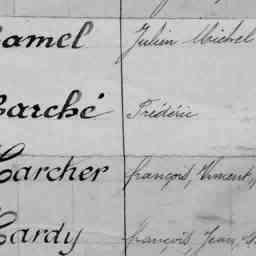 Hamel Julien Michel
Harché Frédéric
Harcher françois, Vincent,
Hardy françois, Jean,